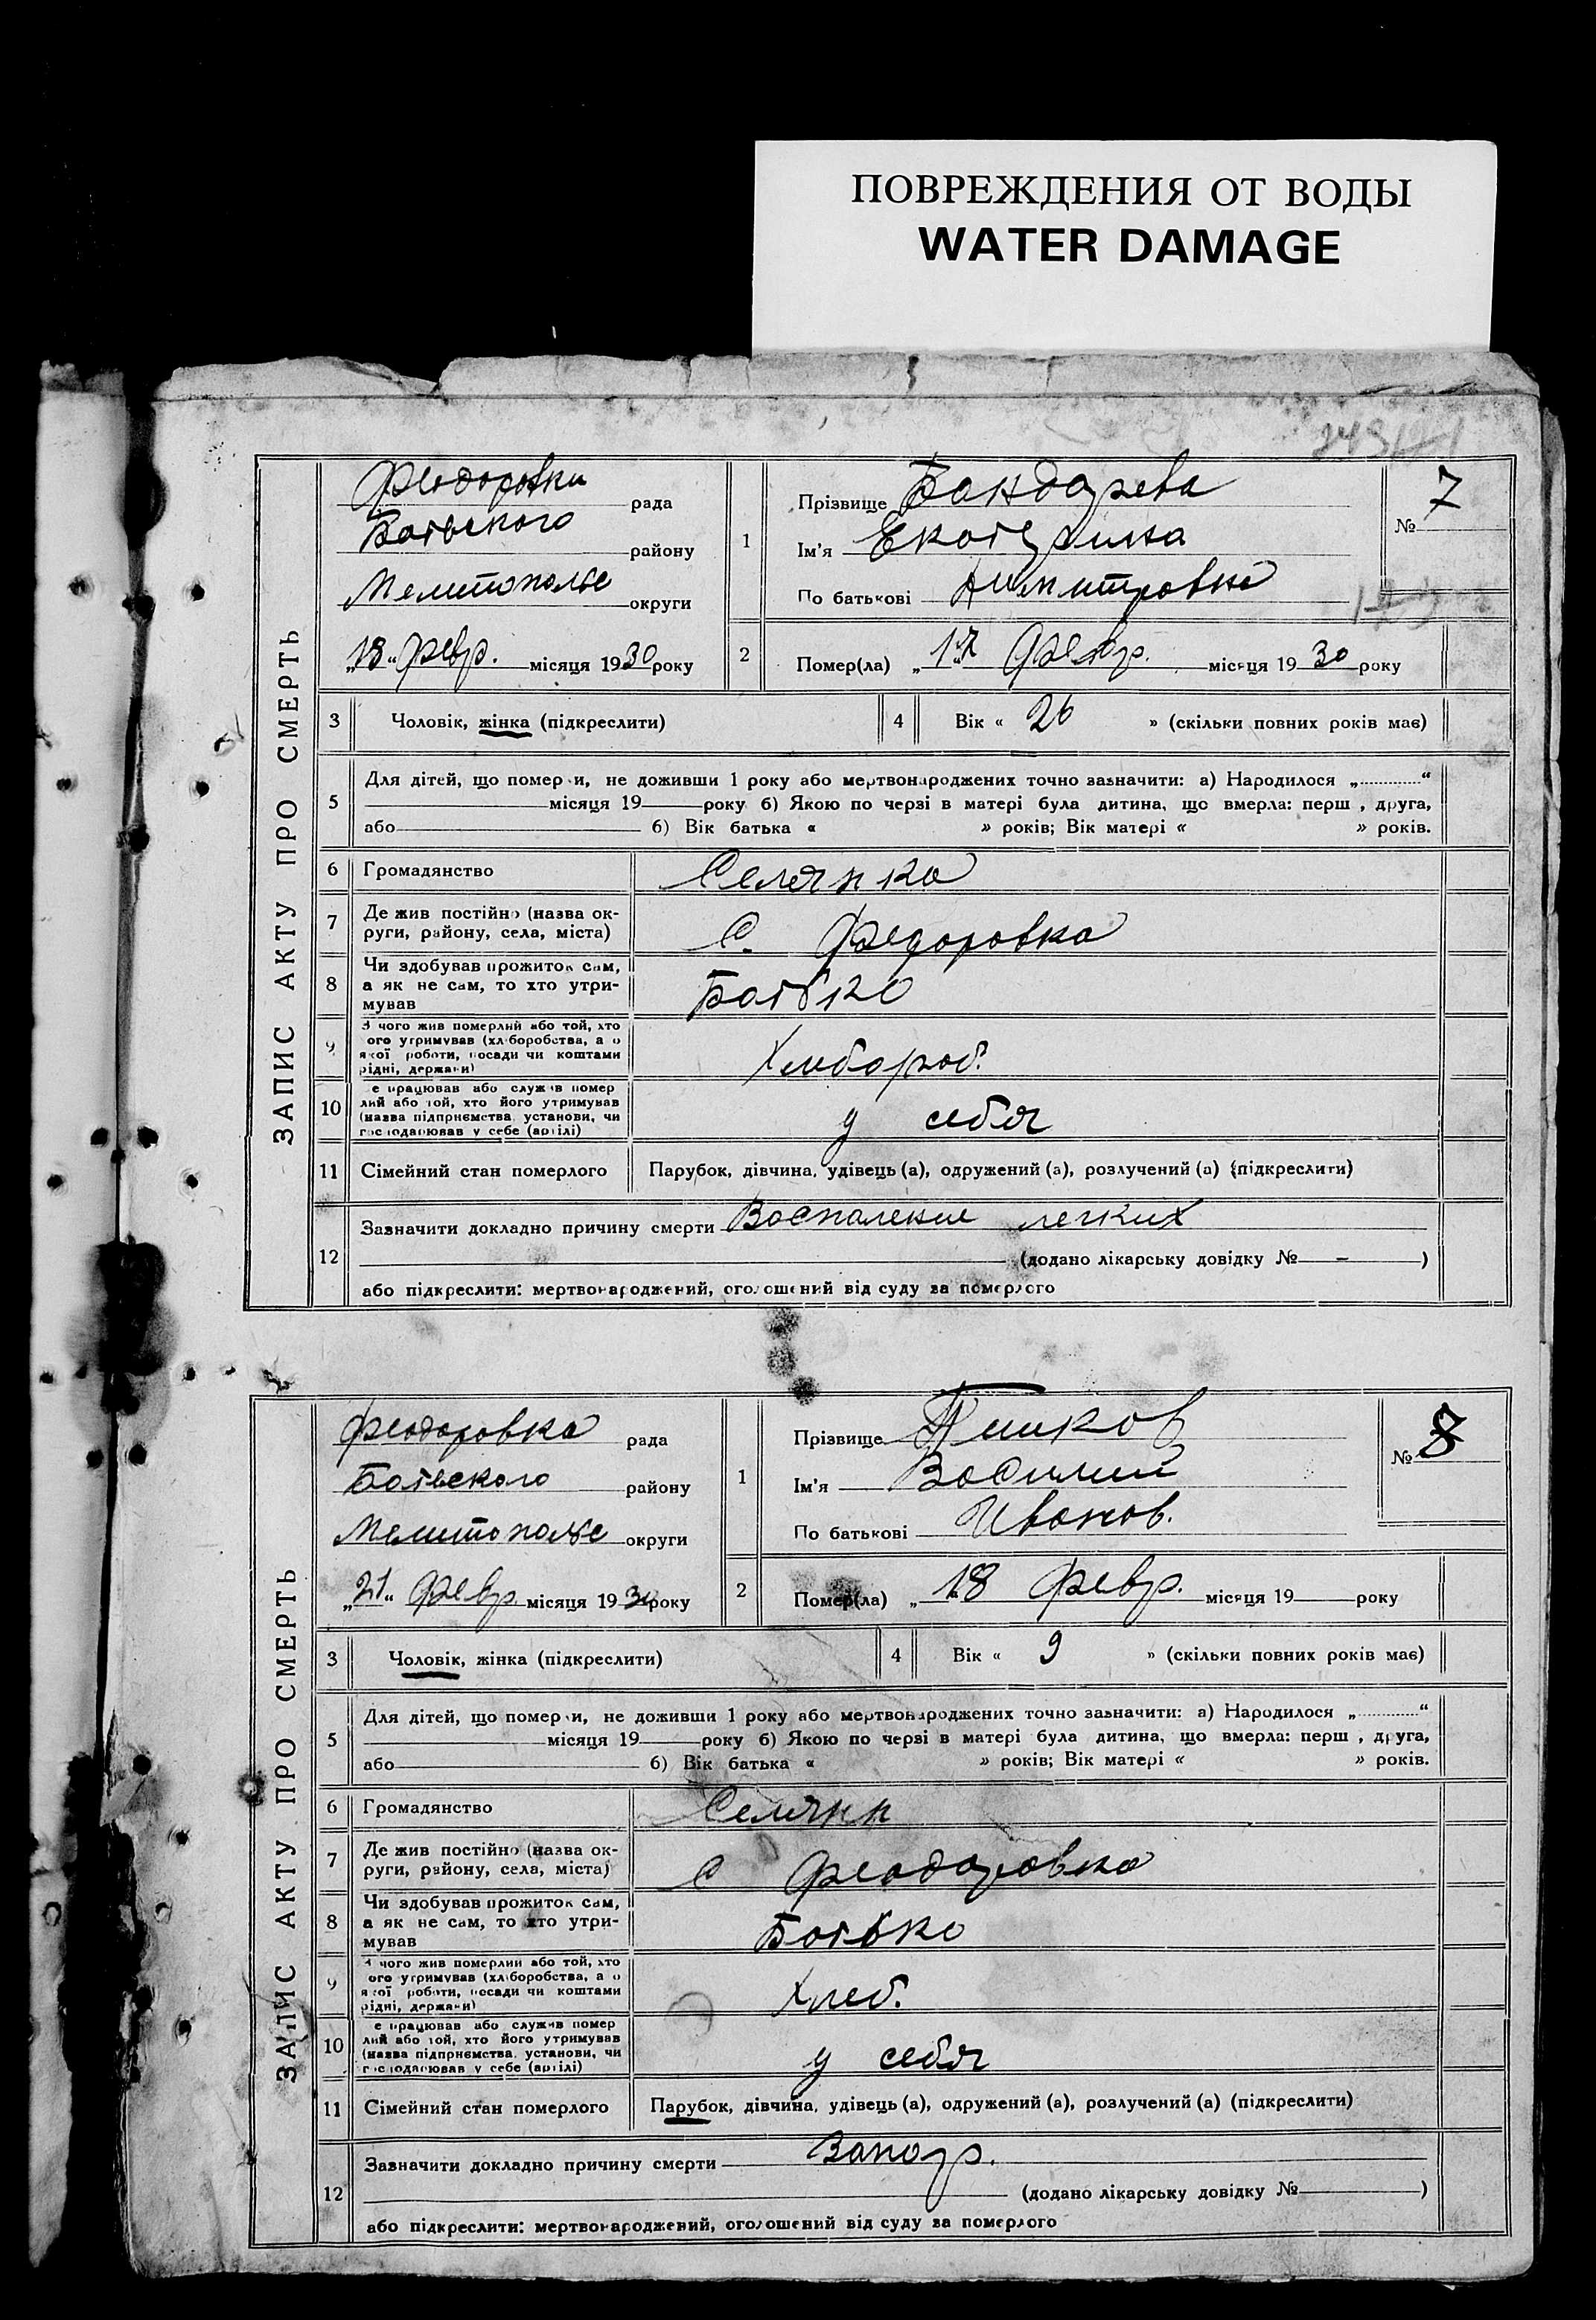 ПОВРЕЖДЕНИЯ ОТ ВОДЫ
WATER DAMAGE
ЗАПИС АКТУ ПРО СМЕРТЬ
Феодоровки рада
Ботьского району
Мелитопольс округи
„18“ февр. місяця 1930 року
1
Прізвище Бандарева
Ім'я Екатерина
По батькові Димитровна
№ 7
2 Помер(ла) „17 Февр. місяця 19 30 року
3 Чоловік, жінка (підкреслити)
4 Вік « 26 » (скільки повних років має)
5 Для дітей, що померли, не доживши 1 року або мертвонароджених точно зазначити: а) Народилося „ “
місяця 19 року б) Якою по черзі в матері була дитина, що вмерла: перш , друга,
або б) Вік батька « » років; Вік матері « » років.
6 Громадянство Селянка
7 Де жив постійно (назва ок-
руги, району, села, міста) С. Федоровка
8 Чи здобував прожиток сам,
а як не сам, то хто утри-
мував Батько
9 З чого жив померлий або той, хто
ого утримував (хліборобства, а о
якої роботи, посади чи коштами
рідні, держави) Хлебороб.
10 е працював або служив помер
лий або той, хто його утримував
(назва підприємства, установи, чи
господарював у себе (артілі) у себя
11 Сімейний стан померлого Парубок, дівчина, удівець (а), одружений (а), розлучений (а) (підкреслити)
12 Зазначити докладно причину смерти Воспаление легких
(додано лікарську довідку № – )
або підкреслити: мертвонароджений, оголошений від суду за померлого
ЗАПИС АКТУ ПРО СМЕРТЬ
Феодоровка рада
Ботьвского району
Мелитопольс округи
„21“ Февр. місяця 1930 року
1
Прізвище Пашков
Ім'я Василий
По батькові Иванов.
№ 8
2 Помер(ла) „18 Февр. місяця 19 року
3 Чоловік, жінка (підкреслити)
4 Вік « 9 » (скільки повних років має)
5 Для дітей, що померли, не доживши 1 року або мертвонароджених точно зазначити: а) Народилося „ “
місяця 19 року б) Якою по черзі в матері була дитина, що вмерла: перш , друга,
або б) Вік батька « » років; Вік матері « » років.
6 Громадянство Селянн
7 Де жив постійно (назва ок-
руги, району, села, міста) С Феодоровка
8 Чи здобував прожиток сам,
а як не сам, то хто утри-
мував Батько
9 З чого жив померлий або той, хто
ого утримував (хліборобства, а о
якої роботи, посади чи коштами
рідні, держави) Хлеб.
10 е працював або служив помер
лий або той, хто його утримував
(назва підприємства, установи, чи
господарював у себе (артілі) у себя
11 Сімейний стан померлого Парубок, дівчина, удівець (а), одружений (а), розлучений (а) (підкреслити)
12 Зазначити докладно причину смерти
(додано лікарську довідку № )
або підкреслити: мертвонароджений, оголошений від суду за померлого